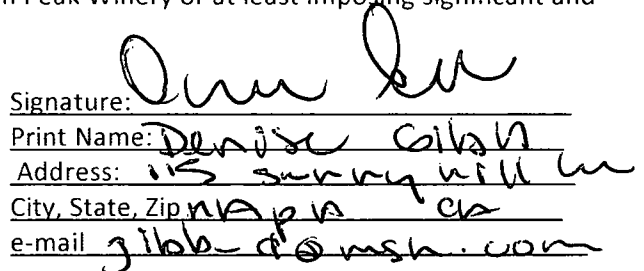 Peak Winery or at least imposing significant and
Signature:
Print Name: Denise Gibb
Address: 115 surrey hill Ln
City, State, Zip NAPA CA
e-mail gibb-d@msn.com